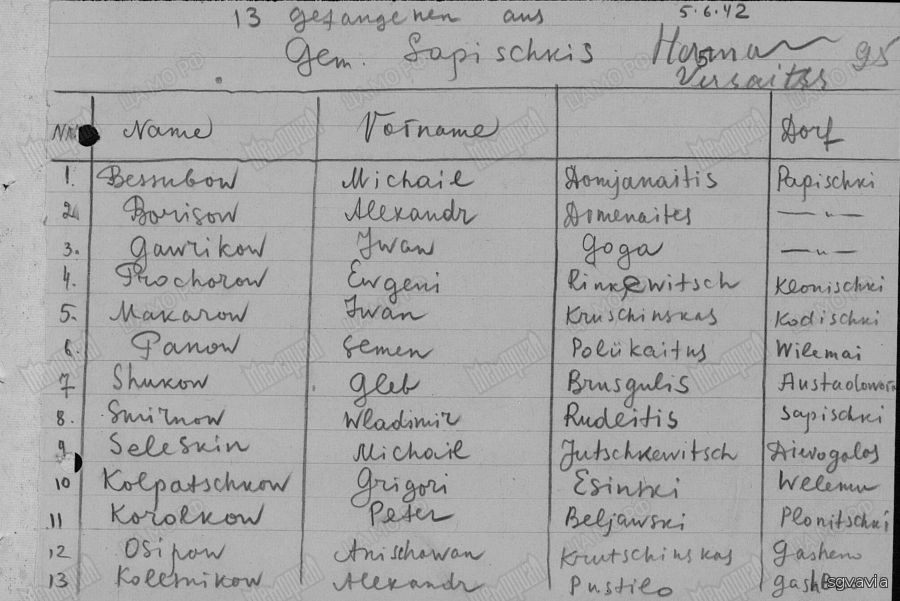 13 gefangenen aus 5.6.42
Gem. Sapischkis 95
Nr. Name Vorname Dorf
1. Bessubow Michail Domjanaitis Papischki
2. Borisow Alexandr Domenaites — " —
3. Gawrikow Iwan Goga — " —
4. Prochorow Ewgeni Rinkewitsch Klonischki
5. Makarow Iwan Kruschinskas Kodischki
6. Panow Semen Polükaitus Wilemai
7 Shukow Gleb Brusgulis
8. Smirnow Wladimir Rudeitis Sapischki
9 Seleskin Michail Jutschkewitsch Dievogalos
10 Kolpatschkow Grigori Esinski
11 Korolkow Peter Beljawski Plonitschki
12 Osipow Anischowan Krutschinskas Gasheno
13 Kolesnikow Alexandr Pustilo
sgvavia
ЦАМО РФ
Мемориал